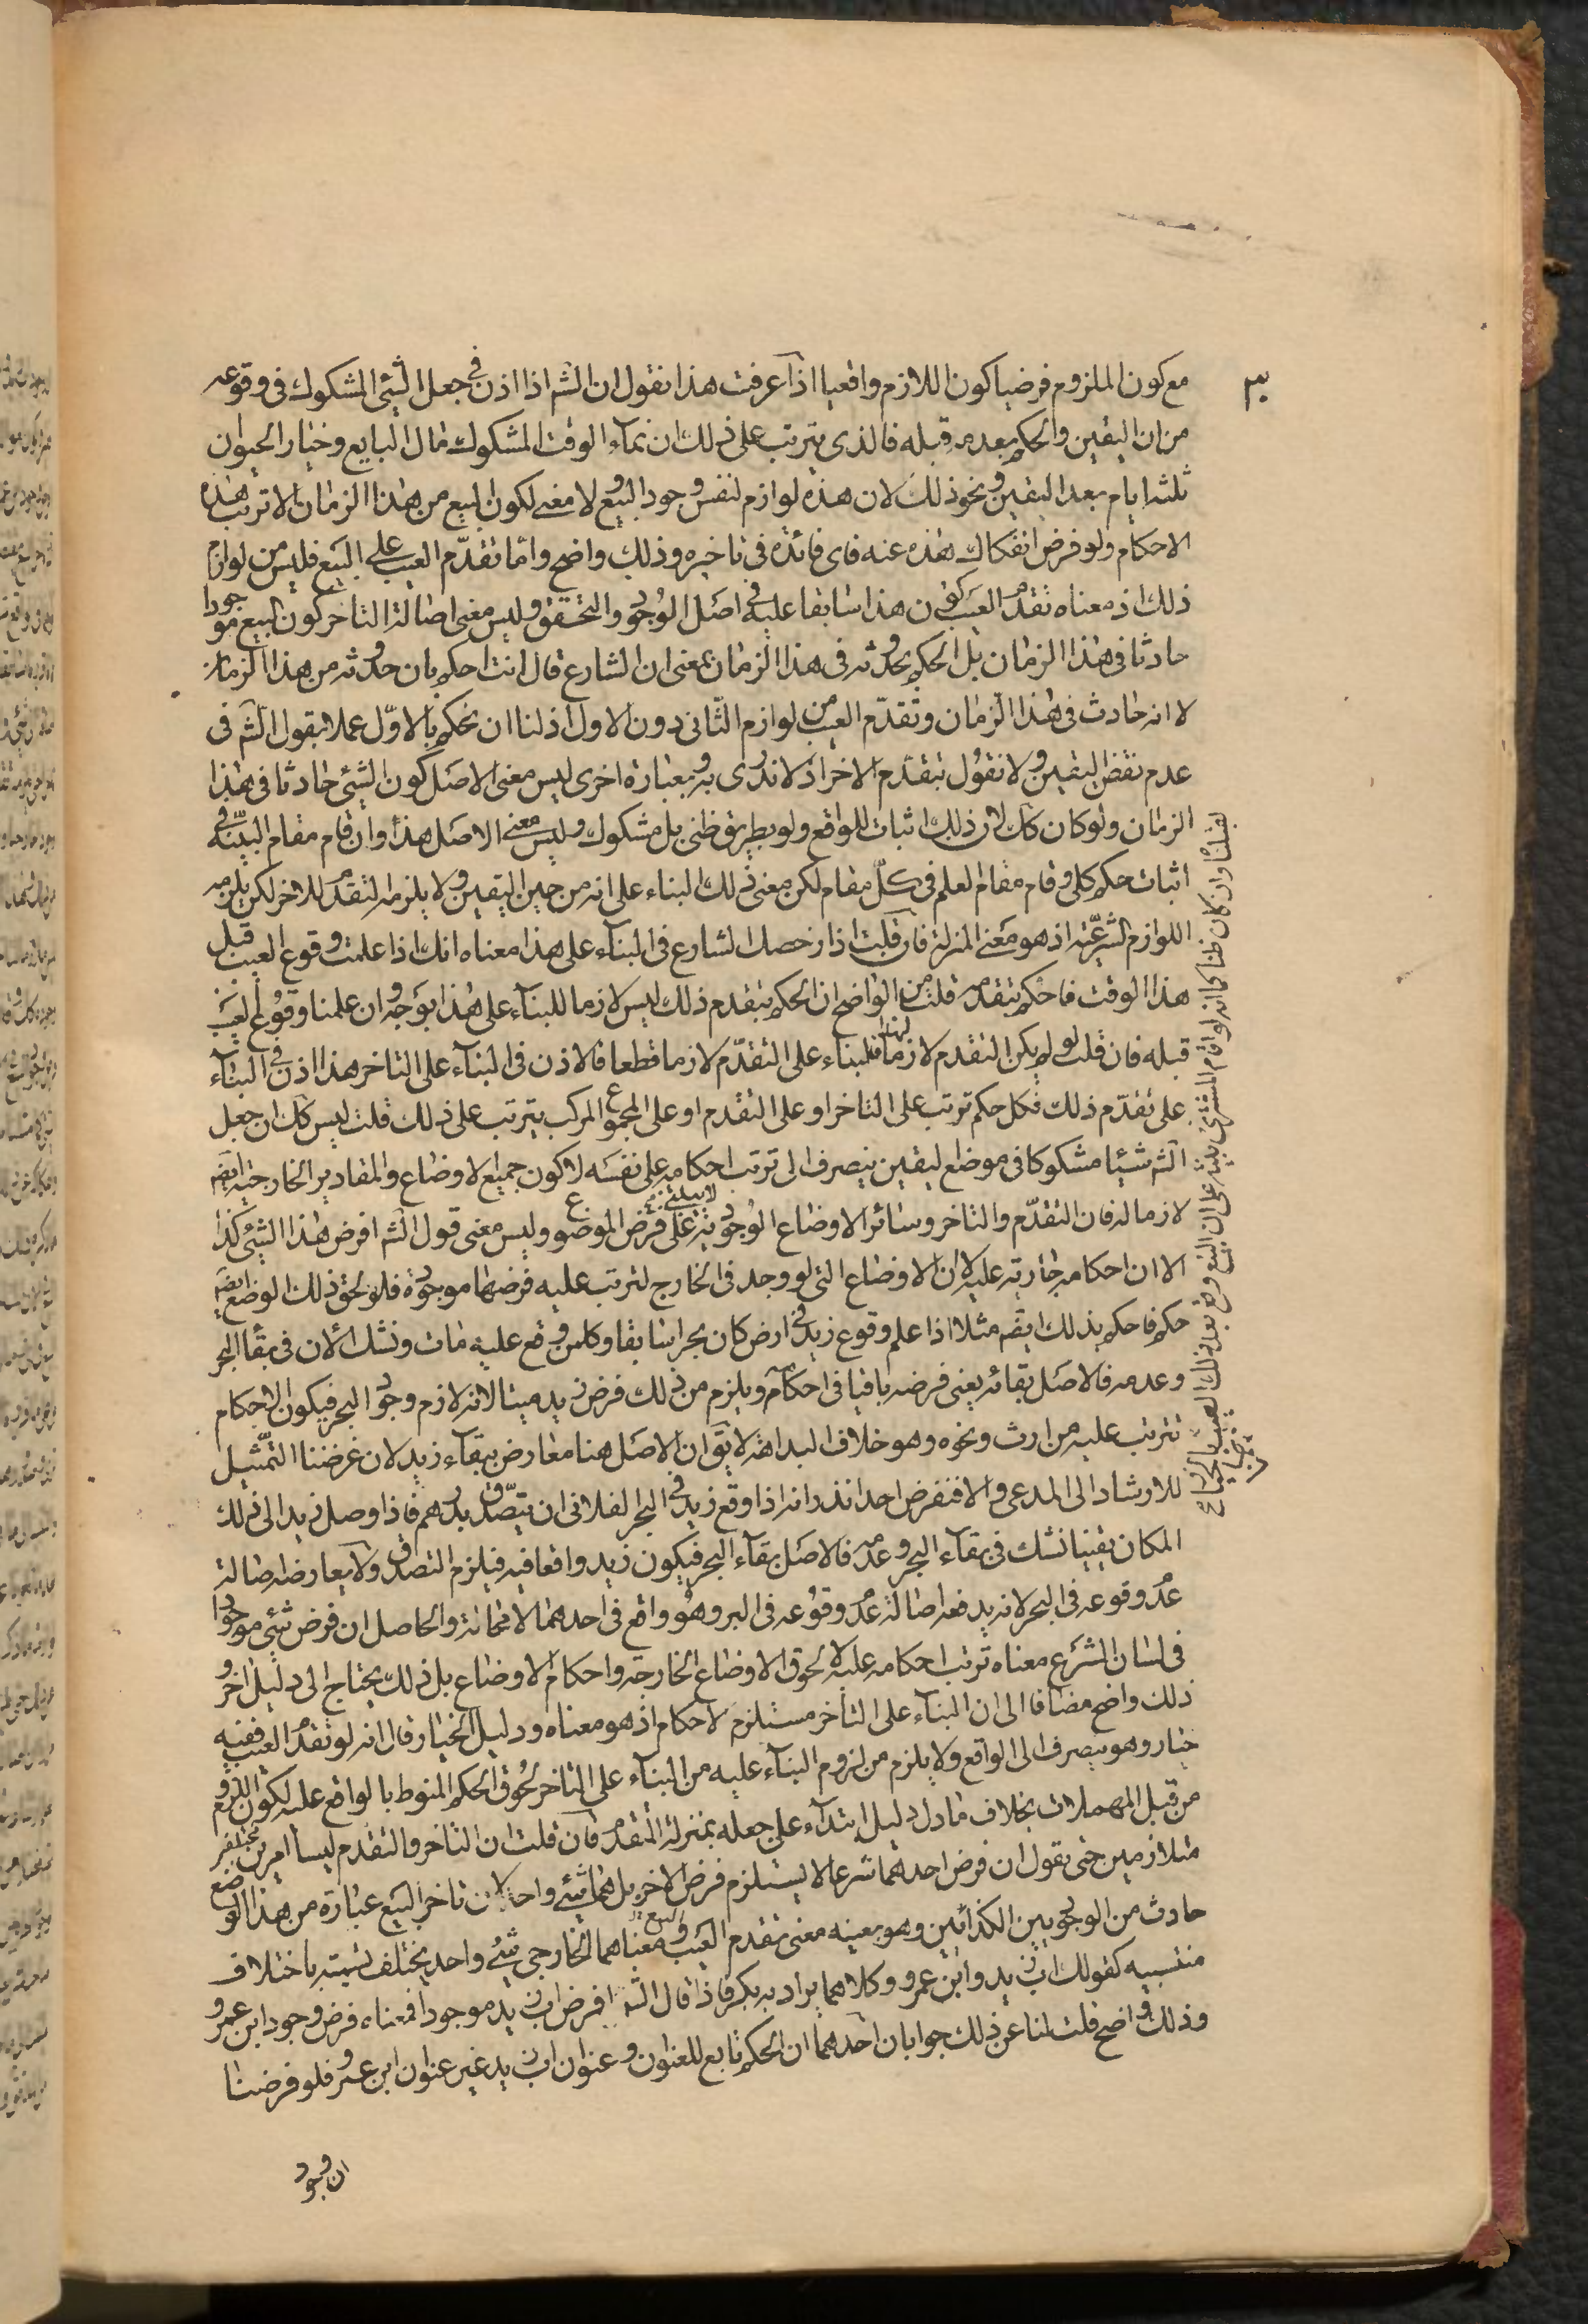 ٣٠
مع كون الملزوم فرضيا كون اللازم واقعيا اذا عرفت هذا نقول ان الشم اذا اذن في جعل الشيئ المشكوك في وقوعه
من ان اليقين والحكم بعدمه قبله فالذى يترتب على ذلك ان نمآء الوقت المشكوك مال البايع وخيار الحيوان
ثلثة ايام بعد اليقين ونحو ذلك لان هذه لوازم لنفس وجود البيع ولا معنى لكون البيع من هذا الزمان الا ترتب هذه
الاحكام ولو فرض انفكاك هذه عنه فاى فائدة في تاخيره وذلك واضح واما تقدّم العيب على البيع فليس من لوازم
ذلك اذ معناه تقدم العيب كون هذا سابقا عليه في اصل الوجود والتحقق وليس معنى اصالة التاخر كون البيع موجودا
حادثا في هذا الزمان بل الحكم بحدوثه في هذا الزمان بمعنى ان الشارع قال انت احكم بان حدوثه من هذا الزمان
لا انه حادث في هذا الزمان وتقدّم العيب من لوازم الثّانى دون الاول اذ لنا ان نحكم بالاوّل عملا بقول الشم في
عدم نقض اليقين ولا نقول بتقدم الاخر اذ لا ندرى به وبعبارة اخرى ليس معنى الاصل كون الشيئ حادثا في هذا
الزمان ولو كان كك لان ذلك اثبات للواقع ولو بطريق ظنى بل مشكوك وليس معنى الاصل هذا وان قام مقام البيّنة في
اثبات حكم كلى وقام مقام العلم في كلّ مقام لكن معنى ذلك البناء على انه من حين اليقين ولا يلزمه التقدم للاخر لكن يلزمه
اللوازم الشرعّية اذ هو معنى المنزلة فان قلت اذا رخصك الشارع في البنآء على هذا معناه انك اذا علمت وقوع العيب قبل
هذا الوقت فاحكم بتقدمه قلت من الواضح ان الحكم بتقدم ذلك ليس لازما للبنآء على هذا بوجه وان علمنا وقوع العيب
قبله فان قلت لو لم يكن التقدم لازما لهذا فلبناء على التقدّم لازما قطعا فالاذن في البنآء على التاخر هذا اذن في البنآء
على تقدّم ذلك فكل حكم ترتب على التاخر او على التقدم او على المجموع المركب يترتب على ذلك قلت ليس كك ان جعل
الشم شيئا مشكوكا في موضع ليقين ينصرف الى ترتب احكامه على نفسه لا كون جميع الاوضاع والمقادير الخارجية ايضه
لازما له فان التقدّم والتاخر وسائر الاوضاع الوجودية لا يبتنى على فرض الموضوع وليس معنى قول الشم افرض هذا الشيئ كذا
الا ان احكامه جارية عليه لا ان الاوضاع التى لو وجد في الخارج لترتب عليه فرضها موجودة فلو لحق ذلك الوضع ايضه
حكم فاحكم بذلك ايضه مثلا اذا علم وقوع زيد في ارض كان بحرا سابقا وكل من وقع عليه مات ونشك الان في بقآ البحر
وعدمه فالاصل بقائه يعنى فرضه باقيا في احكامه ويلزم من ذلك فرض زيد ميتا لانه لازم وجود البحر فيكون الاحكام
تترتب عليه من ارث ونحوه وهو خلاف البداهة لا يق ان الاصل هنا معارض ببقآء زيد لان غرضنا التمّثيل
للارشاد الى المدعى والا فنفرض احدا نذر انه اذا وقع زيد في البحر الفلانى ان يتصّدق بدرهم فاذا وصل زيد الى ذلك
المكان يقينا نشك في بقآء البحر وعدمه فالاصل بقآء البحر فيكون زيد واقعا فيه فيلزم التصدق ولا يعارضه اصالة
عدم وقوعه في البحر لانه يدفعه اصالة عدم وقوعه في البر وهو واقع في احدهما لا محالة والحاصل ان فرض شيئ موجودا
في لسان الشرع معناه ترتب احكامه عليه لا لحوق الاوضاع الخارجة واحكام الاوضاع بل ذلك يحتاج الى دليل اخر و
ذلك واضح مضافا الى ان البناء على التأخر مستلزم لاحكام اذ هو معناه ودليل الخيار قال انه لو تقدم العيب ففيه
خيار وهو ينصرف الى الواقع ولا يلزم من لزوم البنآء عليه من البناء على التاخر لحوق الحكم المنوط بالواقع عليه لكون اللزوم
من قبل المهملات بخلاف ما دل دليل ابتدآء على جعله بمنزلة المتقدم فان قلت ان التاخر والتقدم ليسا امرين مختلفين
متلازمين حتى نقول ان فرض احدهما شرعا لا يستلزم فرض الاخر بل هما شيئ واحد لان تاخر البيع عبارة من هذا الوضع
حادث من الوجود بين الكذائين وهو بعينه معنى تقدم العيب على البيع ومعناهما الخارجى شيئ واحد يختلف تسميته باختلاف
منتسبيه كقولك ابن زيد وابن عمرو وكلاهما يراد به بكر فاذا قال الشم افرض ابن زيد موجودا فمعناه فرض وجود ابن عمرو
وذلك واضح قلت لنا عن ذلك جوابان احدهما ان الحكم تابع للعنوان وعنوان ابن زيد غير عنوان ابن عمرو فلو فرضنا
ان وجود